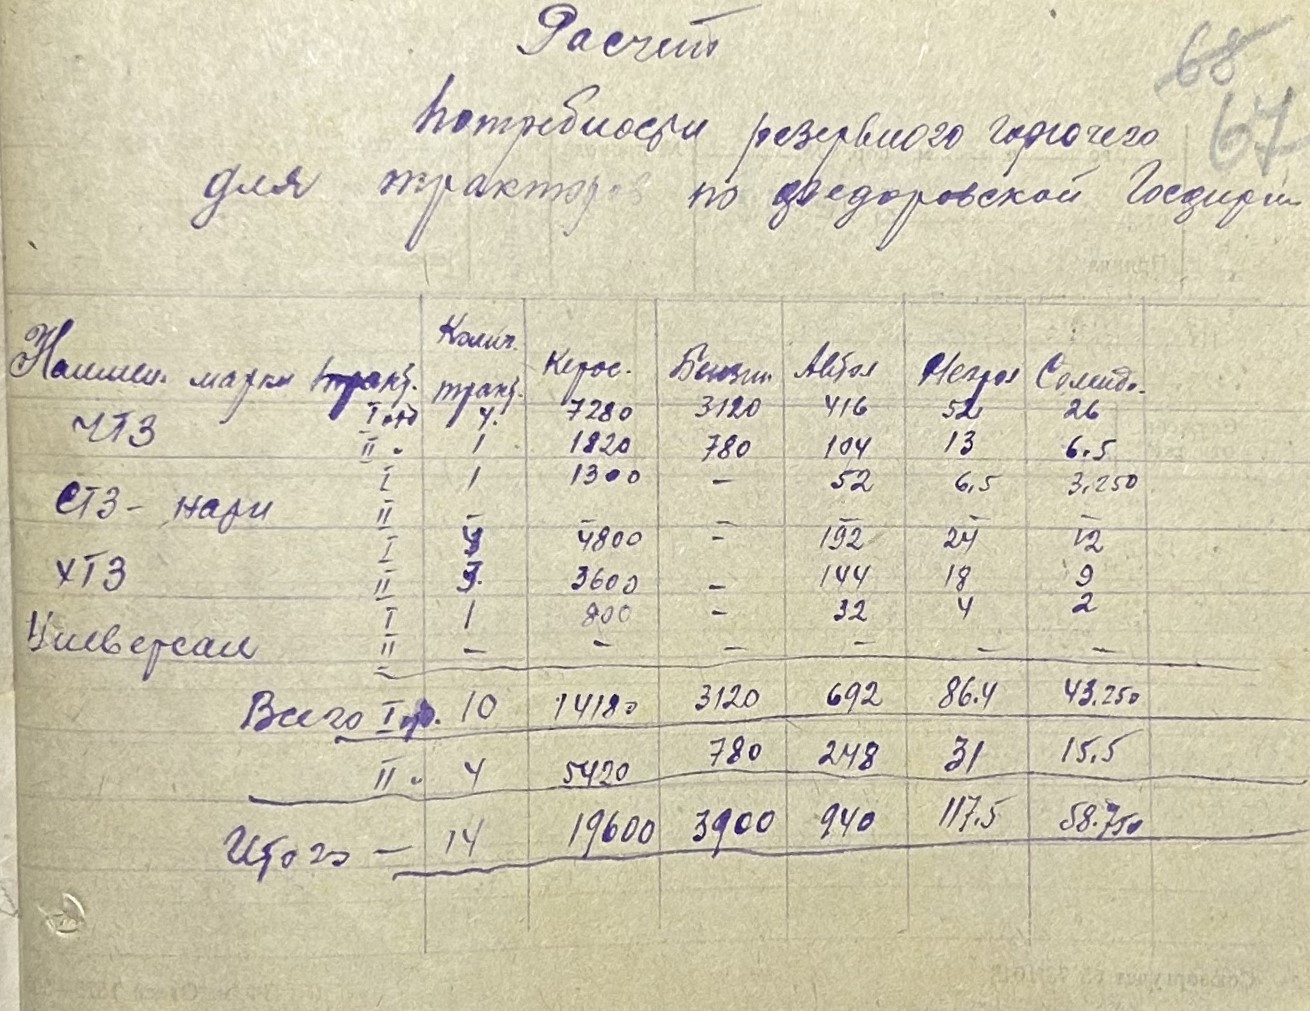 Расчет
68
67
потребности резервного горючего
для тракторов по Федоровской
Наимен. марки тракт. Колич. тракт. Керос. Бензин Автол Негрол Солидо.
ЧТЗ I 4. 7280 3120 416 52 26
II " 1 1820 780 104 13 6.5
СТЗ - нати I 1 1300 - 52 6,5 3.250
II - - - - - -
ХТЗ I 4 4800 - 192 24 12
II 3. 3600 - 144 18 9
Универсал I 1 800 - 32 4 2
II - - - - - -
Всего I гр. 10 14180 3120 692 86.4 43.250
II " 4 5420 780 248 31 15.5
Итого - 14 19600 3900 940 117.5 58.750